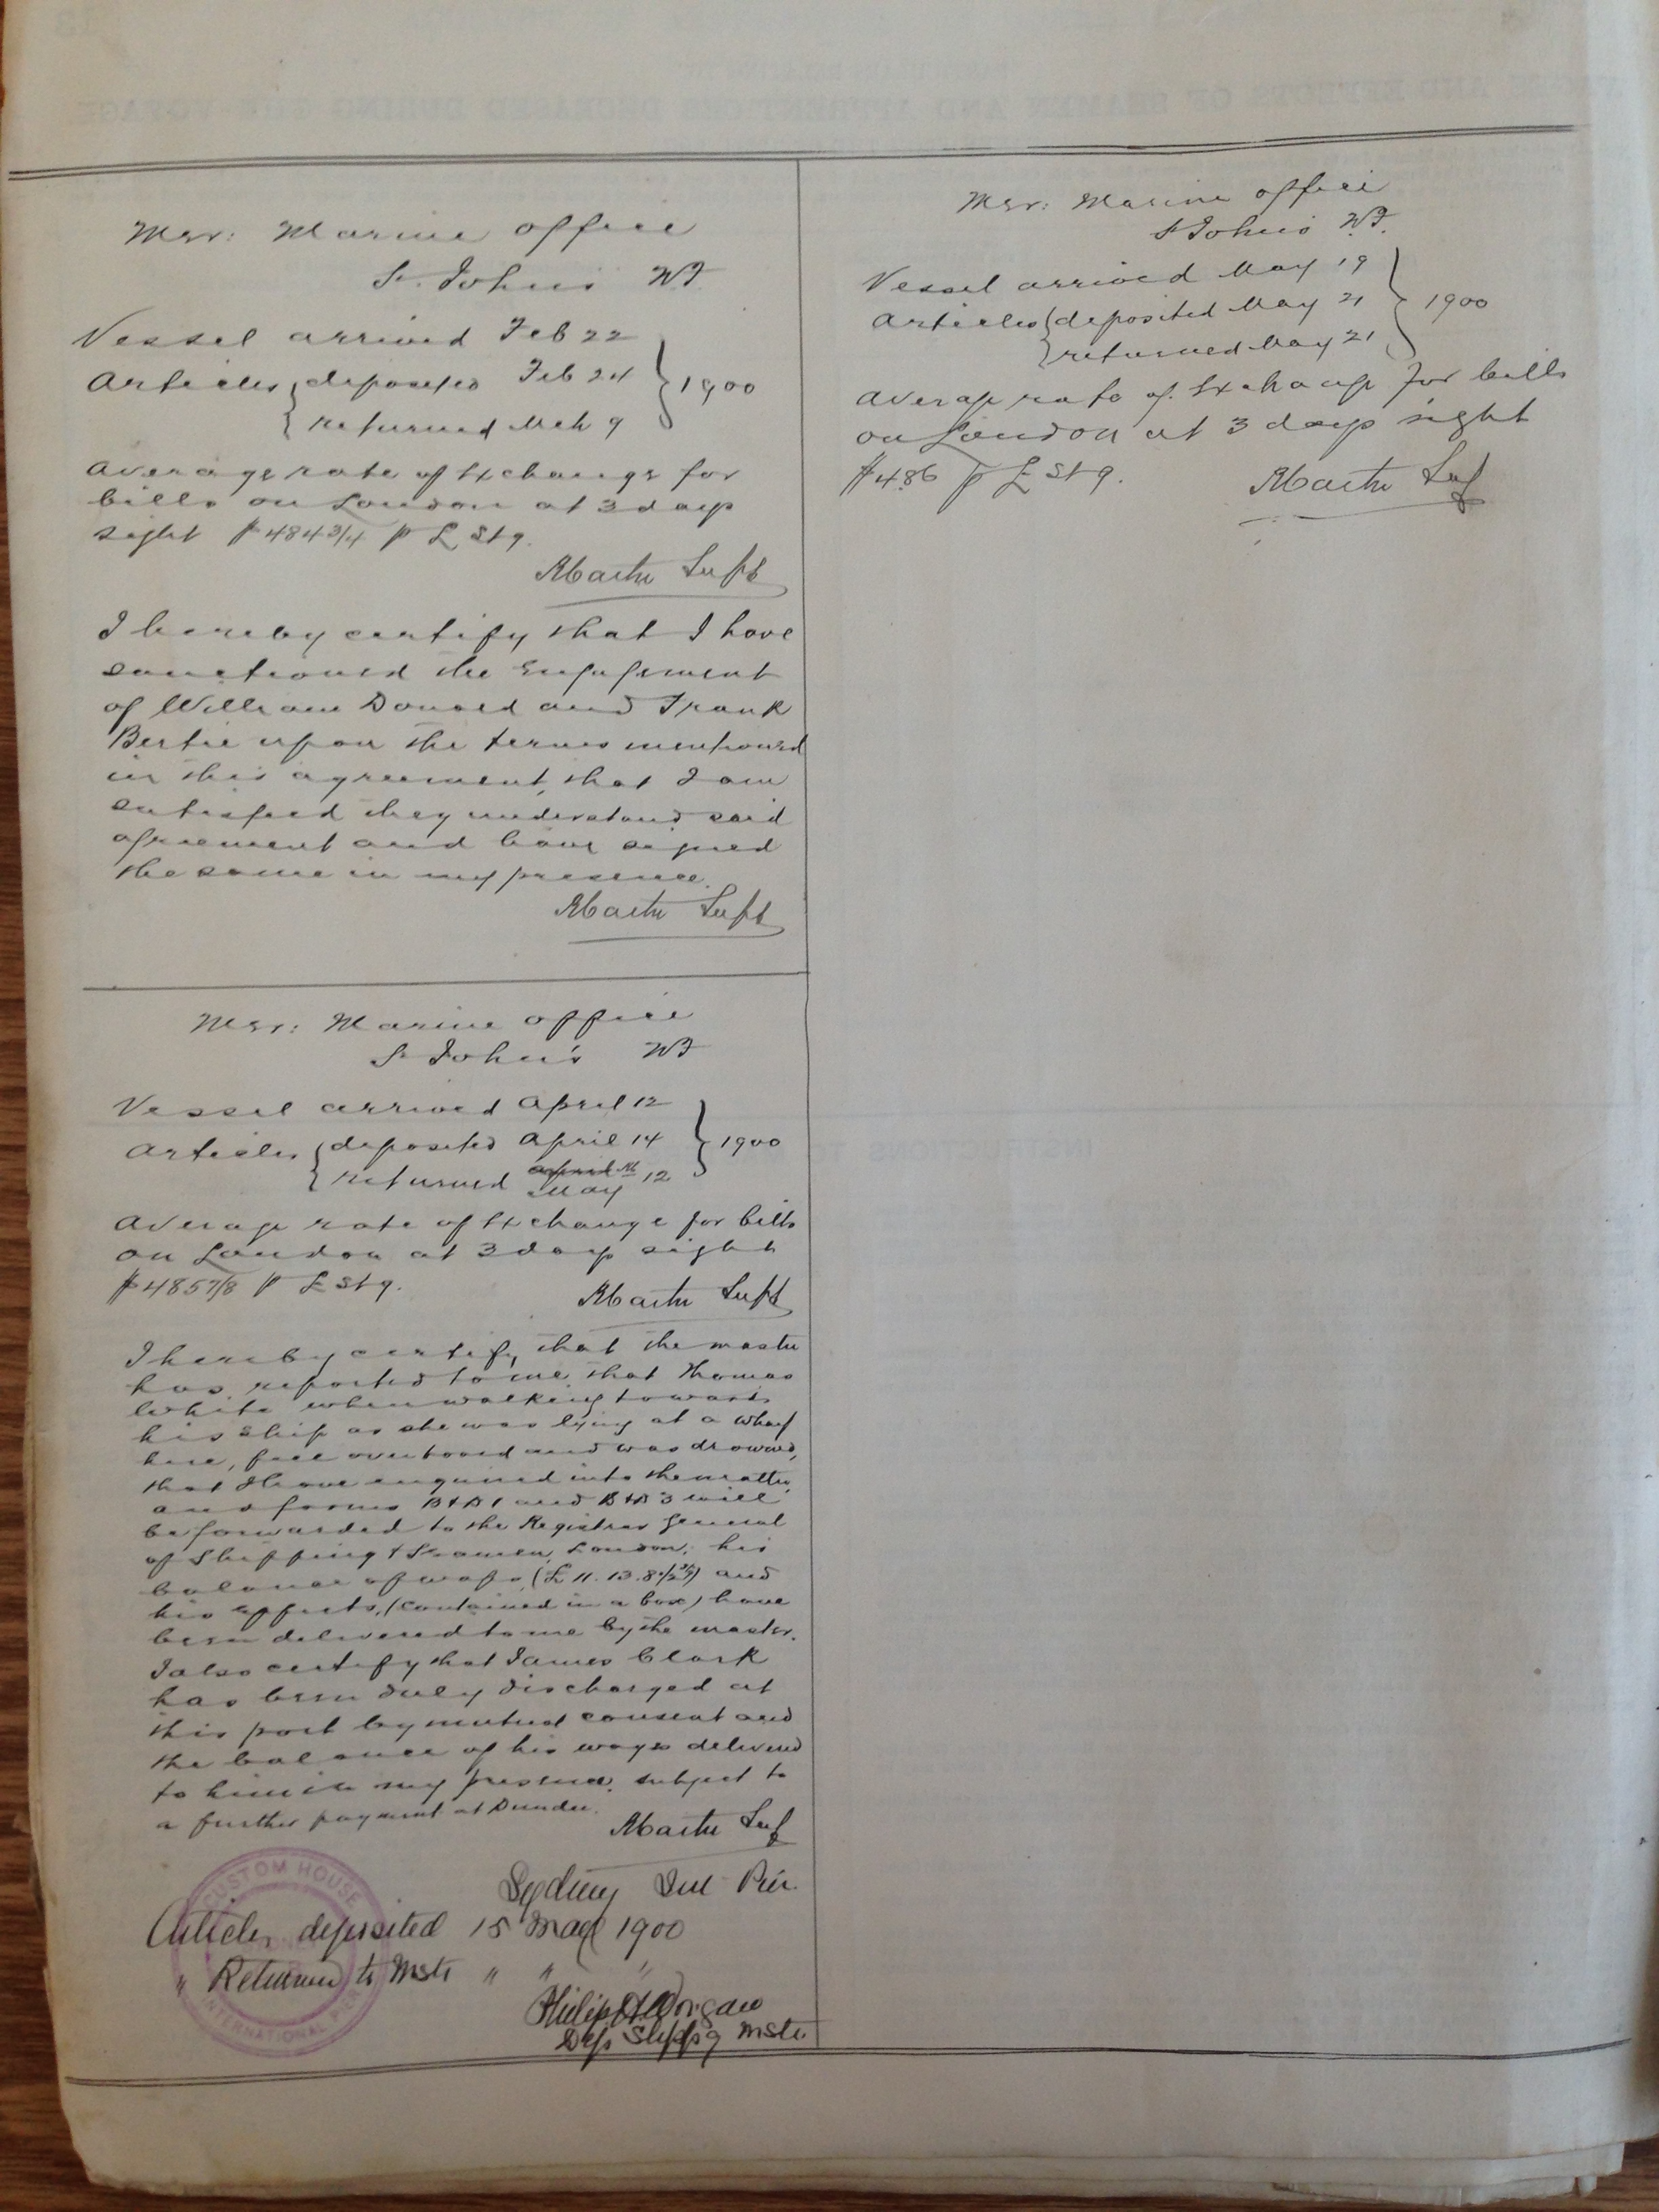 Mer: Marine office
St. John's NF.
Vessel arrived Feb 22
Articles deposited Feb 24
returned Mch 9
1900
Average rate of Exchange for
bills on London at 3 days
sight $4843/4 p £ Stg.
Supt
I hereby certify that I have
sanctioned the Engagement
of William Donald and Frank
Bertie upon the terms mentioned
in this agreement, that I am
satisfied they understand said
agreement and have signed
the same in my presence.
Supt
Mer: Marine office
St John's NF
Vessel arrived April 12
Articles deposited April 14
returned May 12
1900
Average rate of Exchange for bills
on London at 3 days sight
$4857/8 p £ Stg.
Supt
I hereby certify that the master
has reported to me that Thomas
White when walking towards
his ship as she was lying at a wharf
here, fell overboard and was drowned,
that I have enquired into the matter,
and forms B&D 1 and B&D 3 will
be forwarded to the Registrar General
of Shipping & Seamen, London; his
balance of wages (£11.13.8) and
his effects, (contained in a box) have
been delivered to me by the master.
I also certify that James Clark
has been duly discharged at
this port by mutual consent and
the balance of his wages delivered
to him in my presence, subject to
a further payment at Dundee.
Supt
Sydney Int Pier
Articles deposited 15 May 1900
" Returned to Mstr " " "
Philip
Dep Shippg Mstr
CUSTOM HOUSE
INTERNATIONAL PIER
Mer: Marine office
St John's NF.
Vessel arrived May 19
Articles deposited May 21
returned May 21
1900
Average rate of Exchange for bills
on London at 3 days sight
$4.86 p £ Stg.